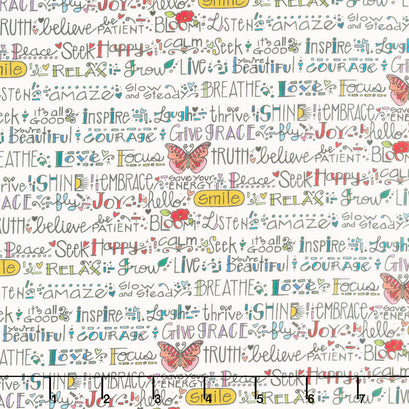 TRUTH believe BE PATIENT BLOOM LISTEN amaze Slow and Steady
Peace Seek Happy calm Seek it's all GOOD inspire Laugh
smile RELAX Grow LIVE you're Beautiful courage Give
LISTEN amaze Slow and Steady BREATHE Love Focus
Seek it's all GOOD inspire Laugh thrive SHINE EMBRACE
you're Beautiful courage Give GRACE fly JOY hello
BREATHE Love Focus TRUTH believe BE PATIENT BLOOM
thrive SHINE EMBRACE save your ENERGY Peace Seek Happy calm
GIVE GRACE fly JOY hello smile RELAX Grow LIVE
TRUTH believe BE PATIENT BLOOM LISTEN amaze Slow and Steady
Peace Seek Happy calm Seek it's all GOOD inspire Laugh
smile RELAX Grow LIVE you're Beautiful courage Give
LISTEN amaze Slow and Steady BREATHE Love Focus
Seek it's all GOOD inspire Laugh thrive SHINE EMBRACE
you're Beautiful courage GIVE GRACE fly JOY hello
BREATHE Love Focus TRUTH believe BE PATIENT BLOOM
thrive SHINE EMBRACE save your ENERGY Peace Seek Happy calm
1 2 3 4 5 6 7
GIVE GRACE fly JOY hello smile RELAX Grow LIVE